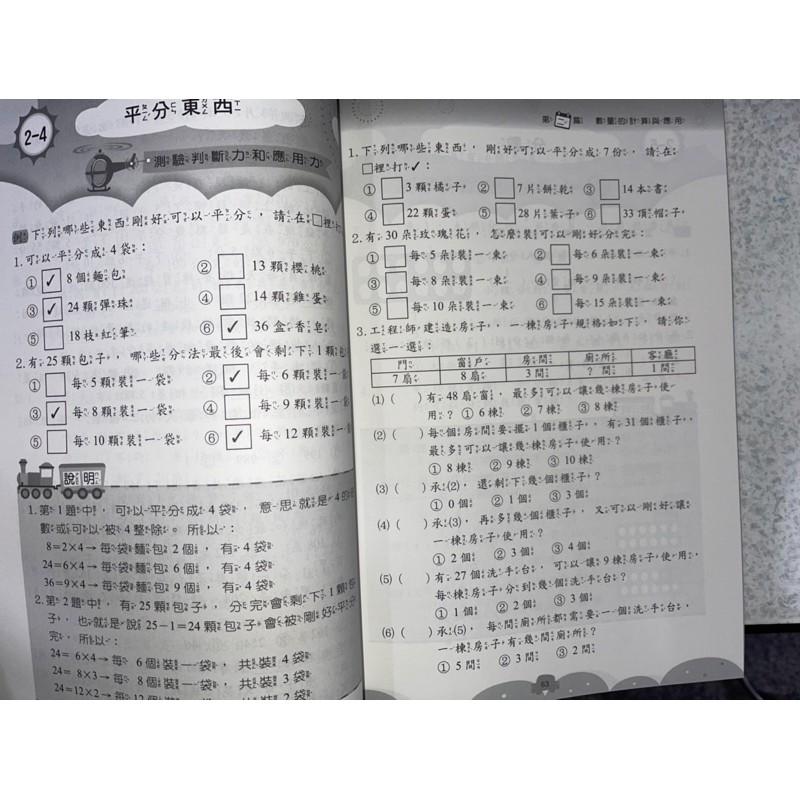 2-4
平分東西
測驗判斷力和應用力
例 下列哪些東西剛好可以平分，請在□裡打
1.可以平分成4袋：
① ✓ 8個麵包
② □ 13顆櫻桃
③ ✓ 24顆彈珠
④ □ 14顆雞蛋
⑤ □ 18枝紅筆
⑥ ✓ 36盒香皂
2.有25顆包子，哪些分法最後會剩下1顆包
① □ 每5顆裝一袋
② ✓ 每6顆裝一袋
③ ✓ 每8顆裝一袋
④ □ 每9顆裝一袋
⑤ □ 每10顆裝一袋
⑥ ✓ 每12顆裝一袋
說明
1.第1題中，可以平分成4袋，意思就是4的倍
數或可以被4整除。所以：
8=2×4→每袋麵包2個，有4袋
24=6×4→每袋麵包6個，有4袋
36=9×4→每袋麵包9個，有4袋
2.第2題中，有25顆包子，分完會剩下1顆包
子，也就是說25-1=24顆包子會被剛好平分
完。所以：
24= 6×4→每 6個裝一袋，共裝4袋
24= 8×3→每 8個裝一袋，共裝3袋
24=12×2→每12個裝一袋，共裝2袋
第二篇 數量的計算與應用
1.下列哪些東西，剛好可以平分成7份，請在
□裡打✓：
① □ 3顆橘子
② □ 7片餅乾
③ □ 14本書
④ □ 22顆蛋
⑤ □ 28片葉子
⑥ □ 33頂帽子
2.有30朵玫瑰花，怎麼裝可以剛好分完：
① □ 每5朵裝一束
② □ 每6朵裝一束
③ □ 每8朵裝一束
④ □ 每9朵裝一束
⑤ □ 每10朵裝一束
⑥ □ 每15朵裝一束
3.工程師建造房子，一棟房子規格如下，請你
選一選：
門 窗戶 房間 廁所 客廳
7扇 8扇 3間 ？間 1間
(1) ( )有48扇窗，最多可以讓幾棟房子使
用？ ①6棟 ②7棟 ③8棟
(2) ( )每個房間要擺1個櫃子，有31個櫃子，
最多可以讓幾棟房子使用？
①8棟 ②9棟 ③10棟
(3) ( )承(2)，還剩下幾個櫃子？
①0個 ②1個 ③3個
(4) ( )承(3)，再多幾個櫃子，又可以剛好讓
一棟房子使用？
①2個 ②3個 ③4個
(5) ( )有27個洗手台，可以讓9棟房子使用，
每棟房子分到幾個洗手台？
①1個 ②2個 ③3個
(6) ( )承(5)，每間廁所都需要一個洗手台，
一棟房子有幾間廁所？
①5間 ②3間 ③2間
63